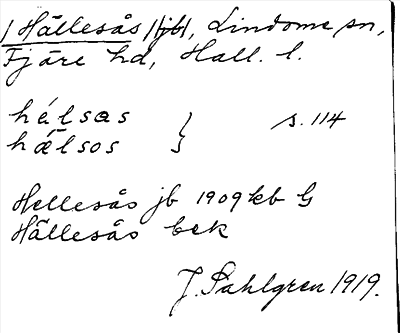 / Hällesås /(jb), Lindome sn,
Fjäre hd, Hall. l.
hélsas } s. 114
hǽlsos
Hellesås jb 1909 kb G
Hällesås bek
J. Sahlgren 1919.